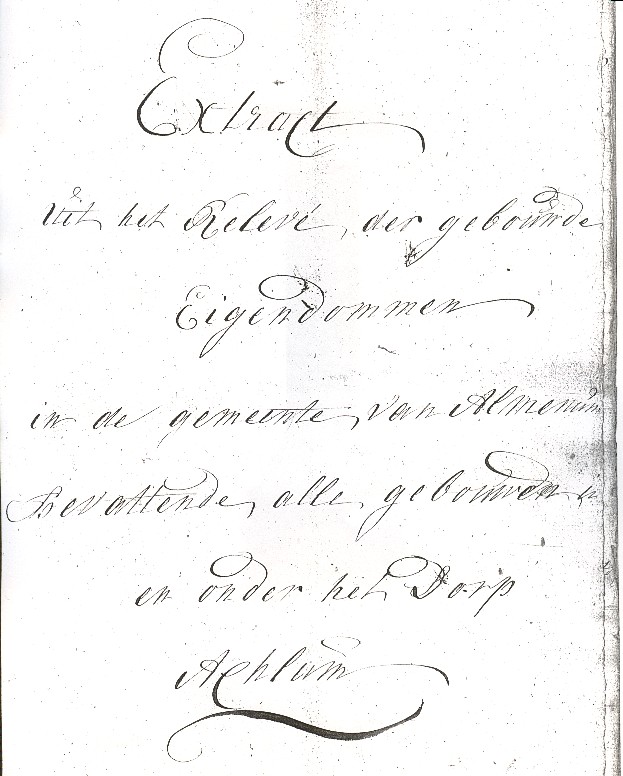 Extract
Uit het Relevé, der geboúwde
Eigendommen
in de gemeente van Almenúm
Bevattende, alle gebouwen
en onder het Dorp
Achlúm